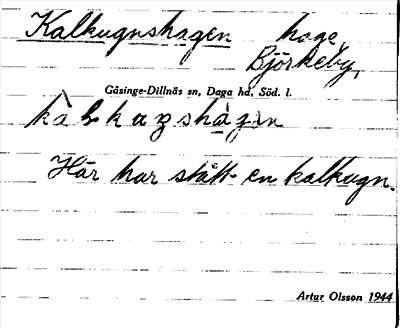 Kalkugnshagen hage,
Björkeby,
Gåsinge-Dillnäs sn, Daga hd, Söd. l.
Här har stått en kalkugn.
Artur Olsson 1944